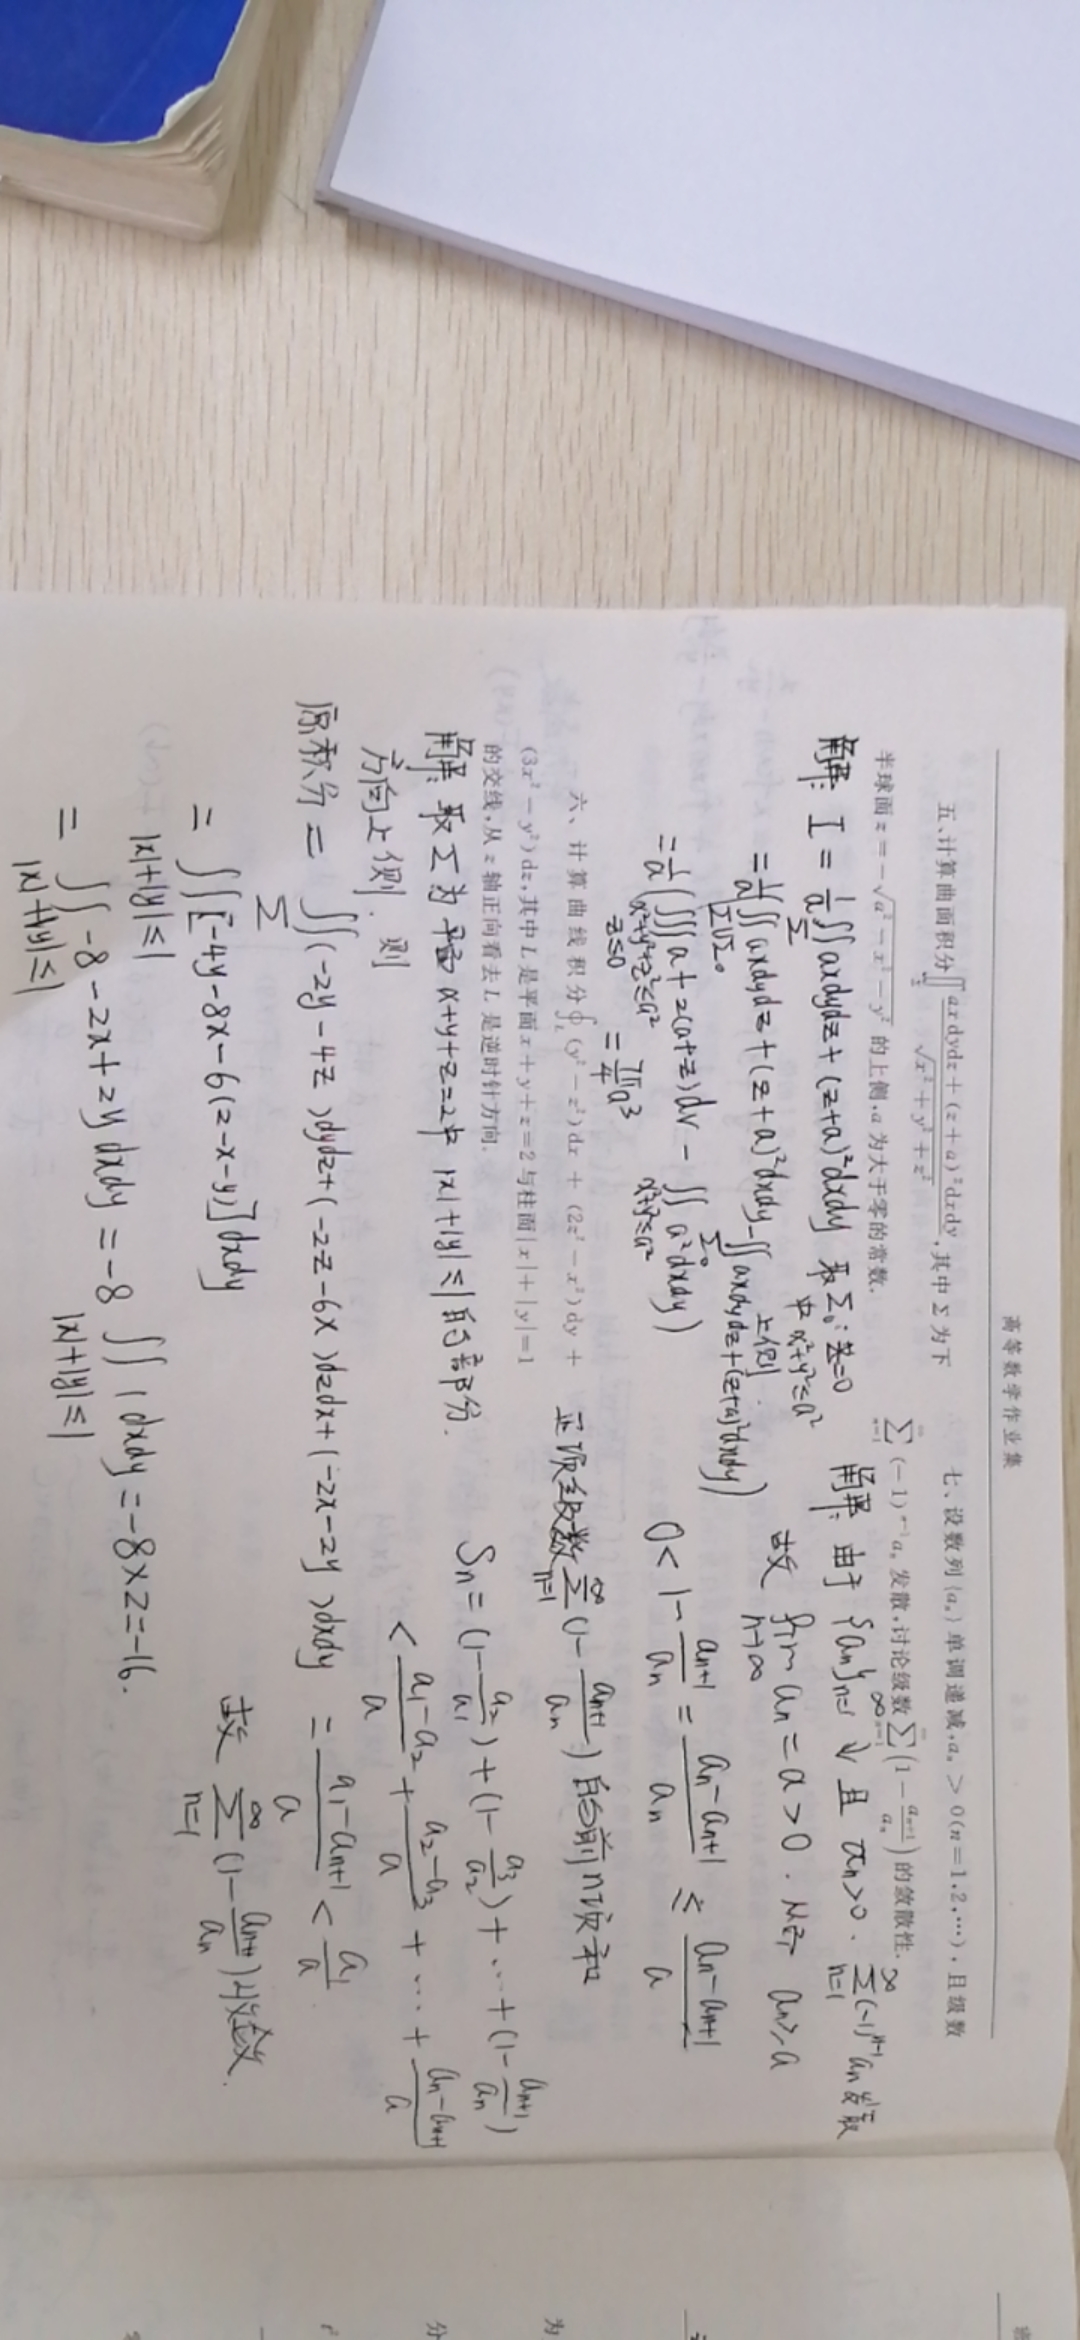 高等数学作业集
五、计算曲面积分∬_Σ (ax dydz + (z + a)² dxdy) / √(x² + y² + z²), 其中 Σ 为下
半球面 z = −√(a² − x² − y²) 的上侧, a 为大于零的常数.
解: I = 1/a ∬_Σ axdydz + (z+a)²dxdy 取 Σ₀: z=0
中 x²+y²≤a²
上侧.
= 1/a (∬_{Σ∪Σ₀} axdydz + (z+a)²dxdy − ∬_{Σ₀} axdydz+(z+a)²dxdy)
= 1/a (∭_{x²+y²+z²≤a², z≤0} a+2(a+z)dv − ∬_{x²+y²≤a²} a²dxdy)
= 7π/4 a³
六、计算曲线积分∮_L (y² − z²)dx + (2z² − x²)dy +
(3x² − y²)dz, 其中 L 是平面 x + y + z = 2 与柱面 |x| + |y| = 1
的交线, 从 z 轴正向看去 L 是逆时针方向.
解: 取 Σ 为平面 x+y+z=2中 |x|+|y|≤1的部分.
方向上侧. 则
原积分 = ∬_Σ (−2y−4z)dydz+(−2z−6x)dzdx+(−2x−2y)dxdy
= ∬_{|x|+|y|≤1} [−4y−8x−6(2−x−y)]dxdy
= ∬_{|x|+|y|≤1} −8−2x+2y dxdy = −8 ∬_{|x|+|y|≤1} 1 dxdy = −8×2=−16.
七、设数列{aₙ}单调递减, aₙ > 0(n=1,2,⋯), 且级数
∑_{n=1}^∞ (−1)ⁿ⁻¹aₙ 发散, 讨论级数 ∑_{n=1}^∞ (1 − aₙ₊₁/aₙ) 的敛散性.
解: 由于 {aₙ}_{n=1}^∞ ↓ 且 aₙ>0. ∑_{n=1}^∞ (−1)ⁿ⁻¹ aₙ 发散
故 lim_{n→∞} aₙ = a > 0. 从而 aₙ≥a
0 < 1 − aₙ₊₁/aₙ = (aₙ−aₙ₊₁)/aₙ ≤ (aₙ−aₙ₊₁)/a
正项级数 ∑_{n=1}^∞ (1 − aₙ₊₁/aₙ) 的前n项和
Sₙ = (1−a₂/a₁)+(1−a₃/a₂)+⋯+(1−aₙ₊₁/aₙ)
< (a₁−a₂)/a + (a₂−a₃)/a + ⋯ + (aₙ−aₙ₊₁)/a
= (a₁−aₙ₊₁)/a < a₁/a
故 ∑_{n=1}^∞ (1−aₙ₊₁/aₙ)收敛.